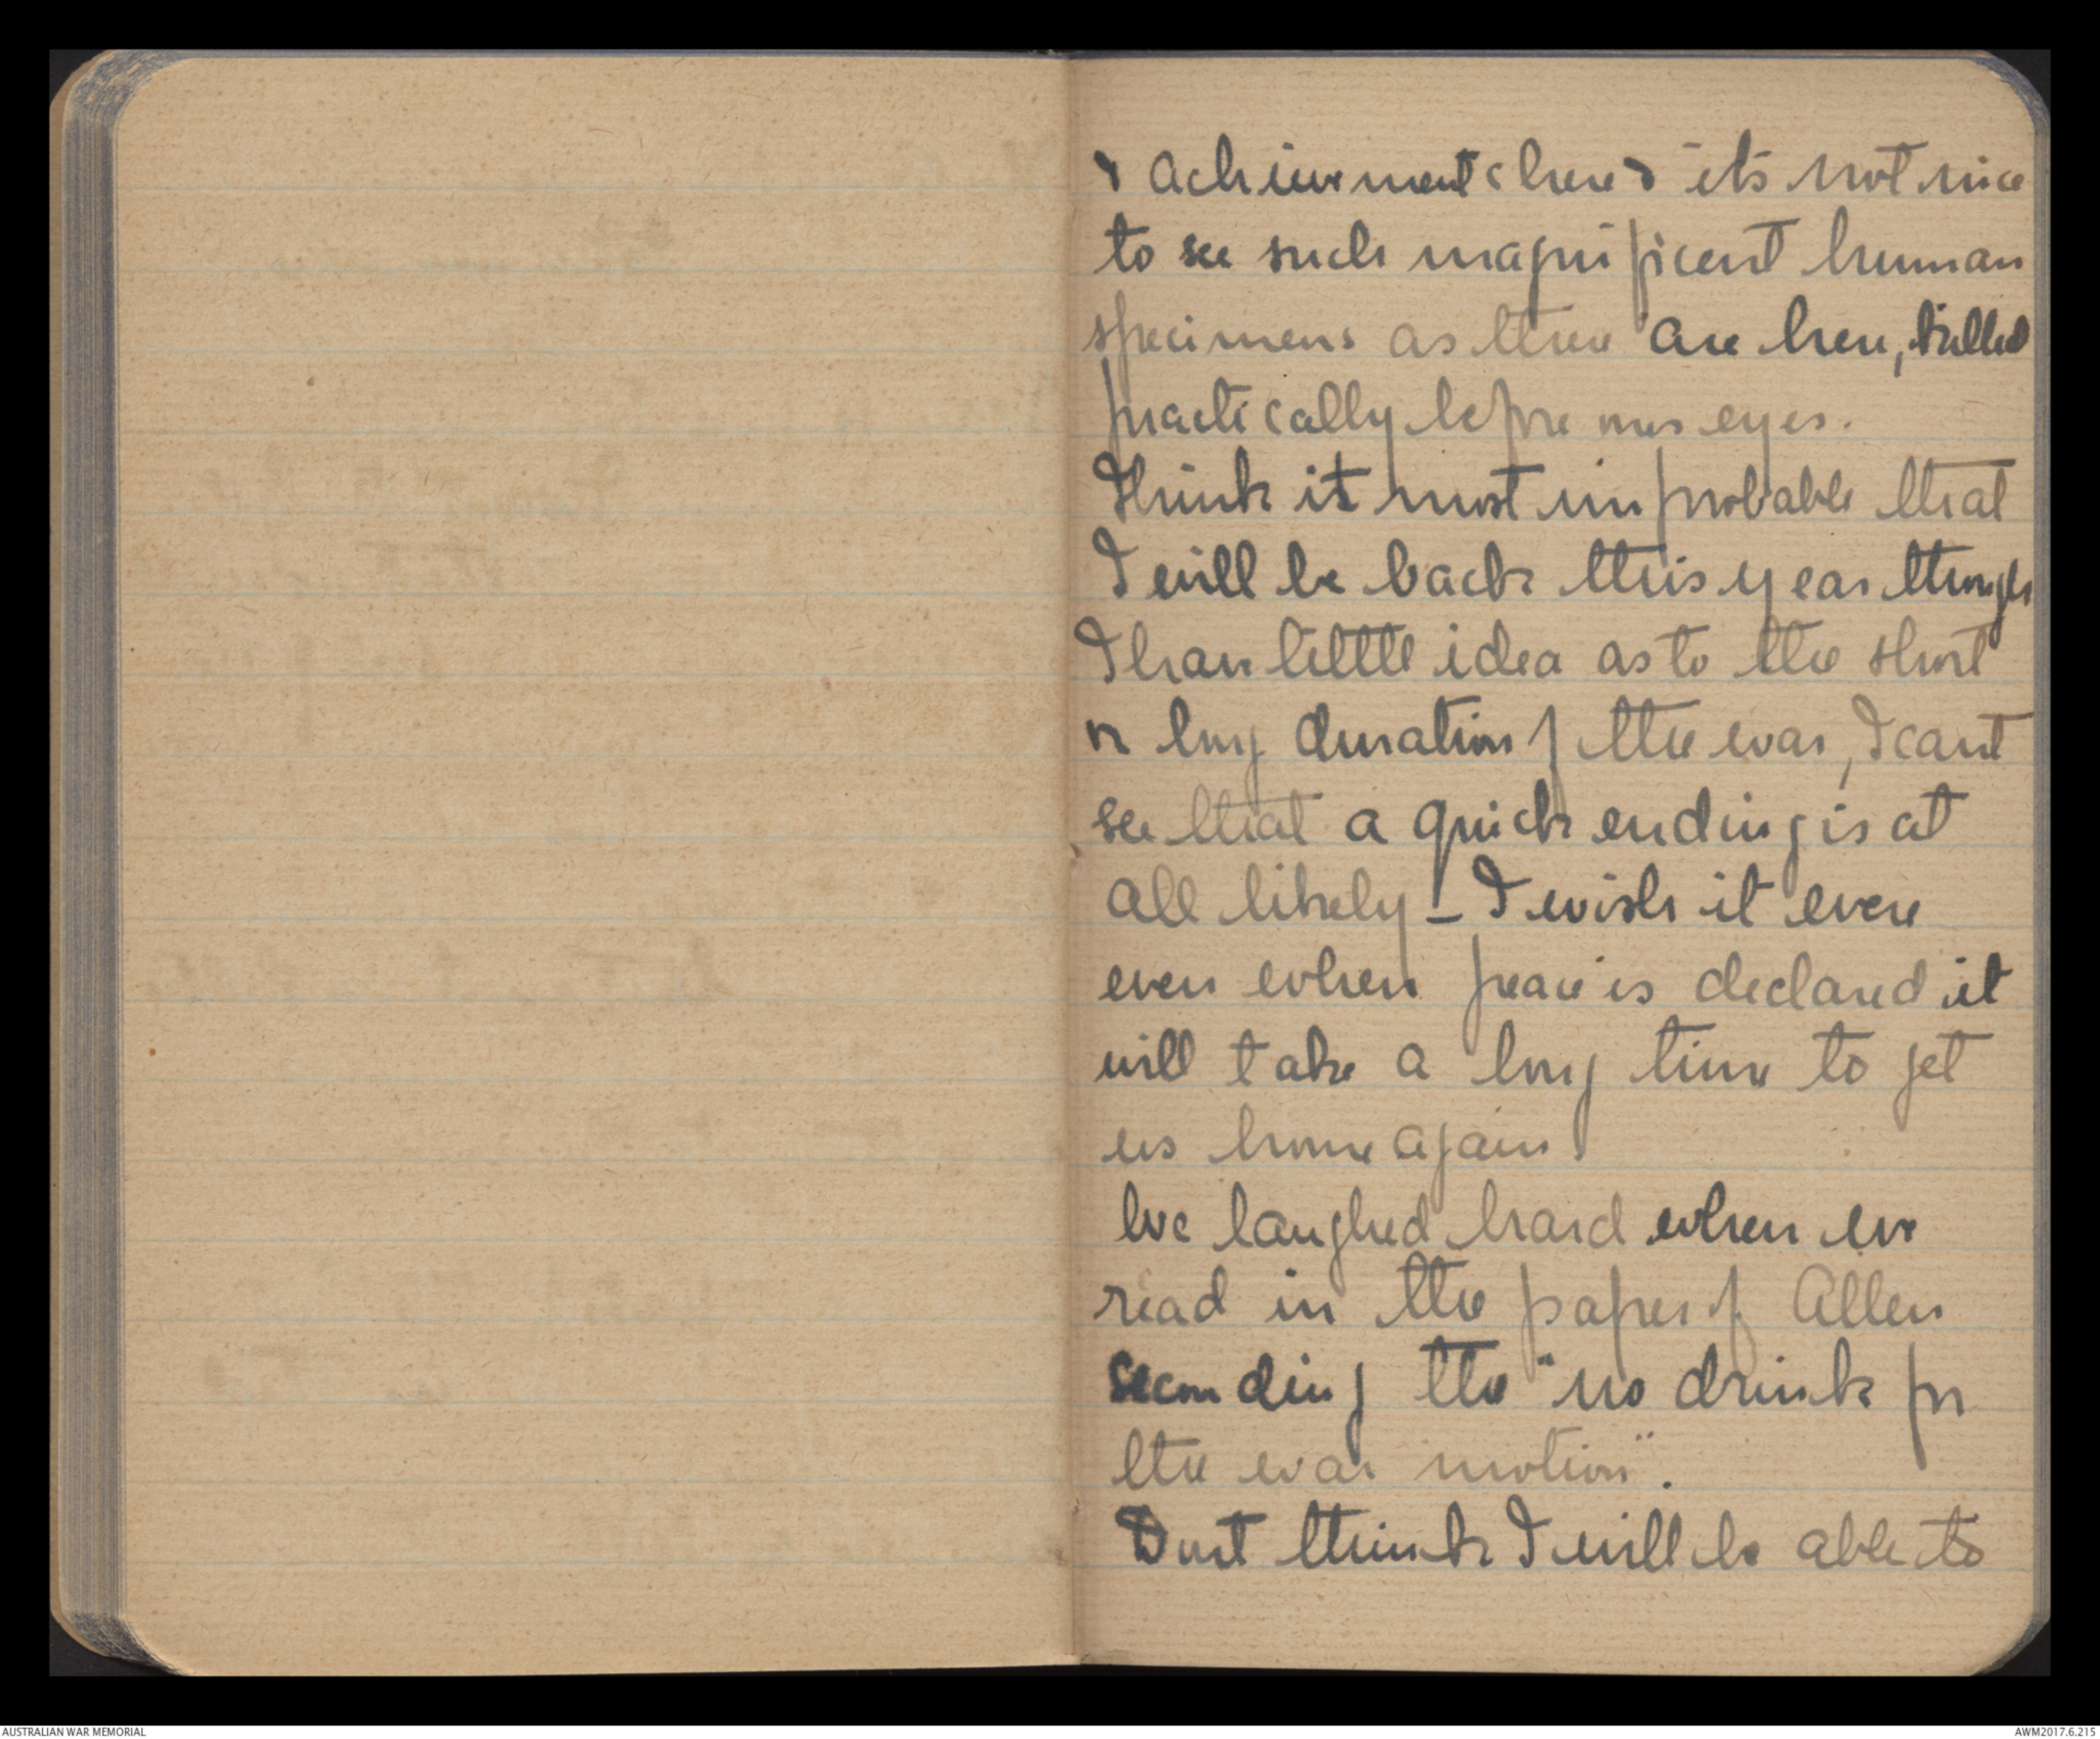 & achievements here & its not nice
to see such magnificent human
specimens as there are here, killed
practically before ones eyes.
Think it most improbable that
I will be back this year though
I have little idea as to the short
or long duration of the war, I cant
see that a quick ending is at
all likely – I wish it were
even when peace is declared it
will take a long time to get
us home again.
We laughed hard when we
read in the paper of Allen
seconding the "no drink for
the war motion".
Dont think I will be able to
AUSTRALIAN WAR MEMORIAL
AWM2017.6.215